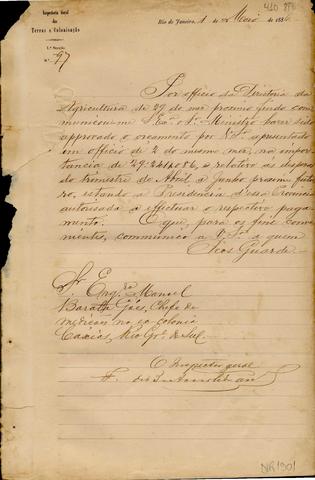 Inspectoria Geral
das
Terras e Colonisação
1.ª Secção
N.º 97
Rio de Janeiro, 1 de Maio de 188
Por officio da Directoria da
Agricultura de 29 do mez proximo findo com-
municou-me S. Ex.ª o Sr. Ministro haver sido
approvado o orçamento por V. S.ª apresentado
em officio de 2 do mesmo mez, na impor-
tancia de e relativo ás despezas
do trimestre de Abril a Junho, proximo futu-
ro, estando a Presidencia d'essa Provincia
autorisada a effectuar o respectivo paga-
mento. O que, para os fins conve-
nientes, communico a V. S.ª a quem
Deos Guarde.
Sr. Eng.ro Manoel
Barata Góes, Chefe da
medição na ex colonia
Caxias, Rio Gr.de do Sul.
O Inspector geral
F. de